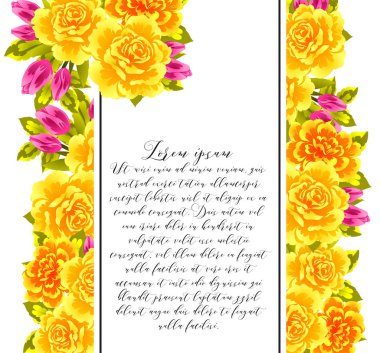 Lorem ipsum
Ut wisi enim ad minim veniam, quis
nostrud exerci tation ullamcorper
suscipit lobortis nisl ut aliquip ex ea
commodo consequat. Duis autem vel
eum iriure dolor in hendrerit in
vulputate velit esse molestie
consequat, vel illum dolore eu feugiat
nulla facilisis at vero eros et
accumsan et iusto odio dignissim qui
blandit praesent luptatum zzril
delenit augue duis dolore te feugait
nulla facilisi.